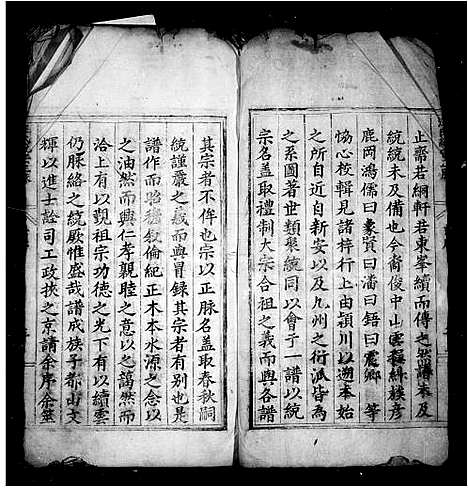 止齋若綱軒若東峯續而傳之然講未及
統統未及備也今裔俊中山雲糾族彥
鹿岡鴻儒曰象賢曰潘曰鋙曰震鄉等
恊心校輯見諸梓行上由頴川以遡本始
之所自近自新安以及九州之衍派皆為
之系圖著世類髮統同以會于一譜以統
宗名盖取禮制大宗合祖之義而與各譜
其宗者不侔也宗以正脉名盖取春秋嗣
統謹嚴之義而與冒録其宗者有别也是
譜作而昭穆敘倫紀正木本水源之心為
之油然而興仁孝親睦之意以之藹然而
洽上有以覲祖宗功德之光下有以續雲
仍朕絡之統厥惟盛哉譜成族子都山文
輝以進士訟司工政挾之京請余序余筮